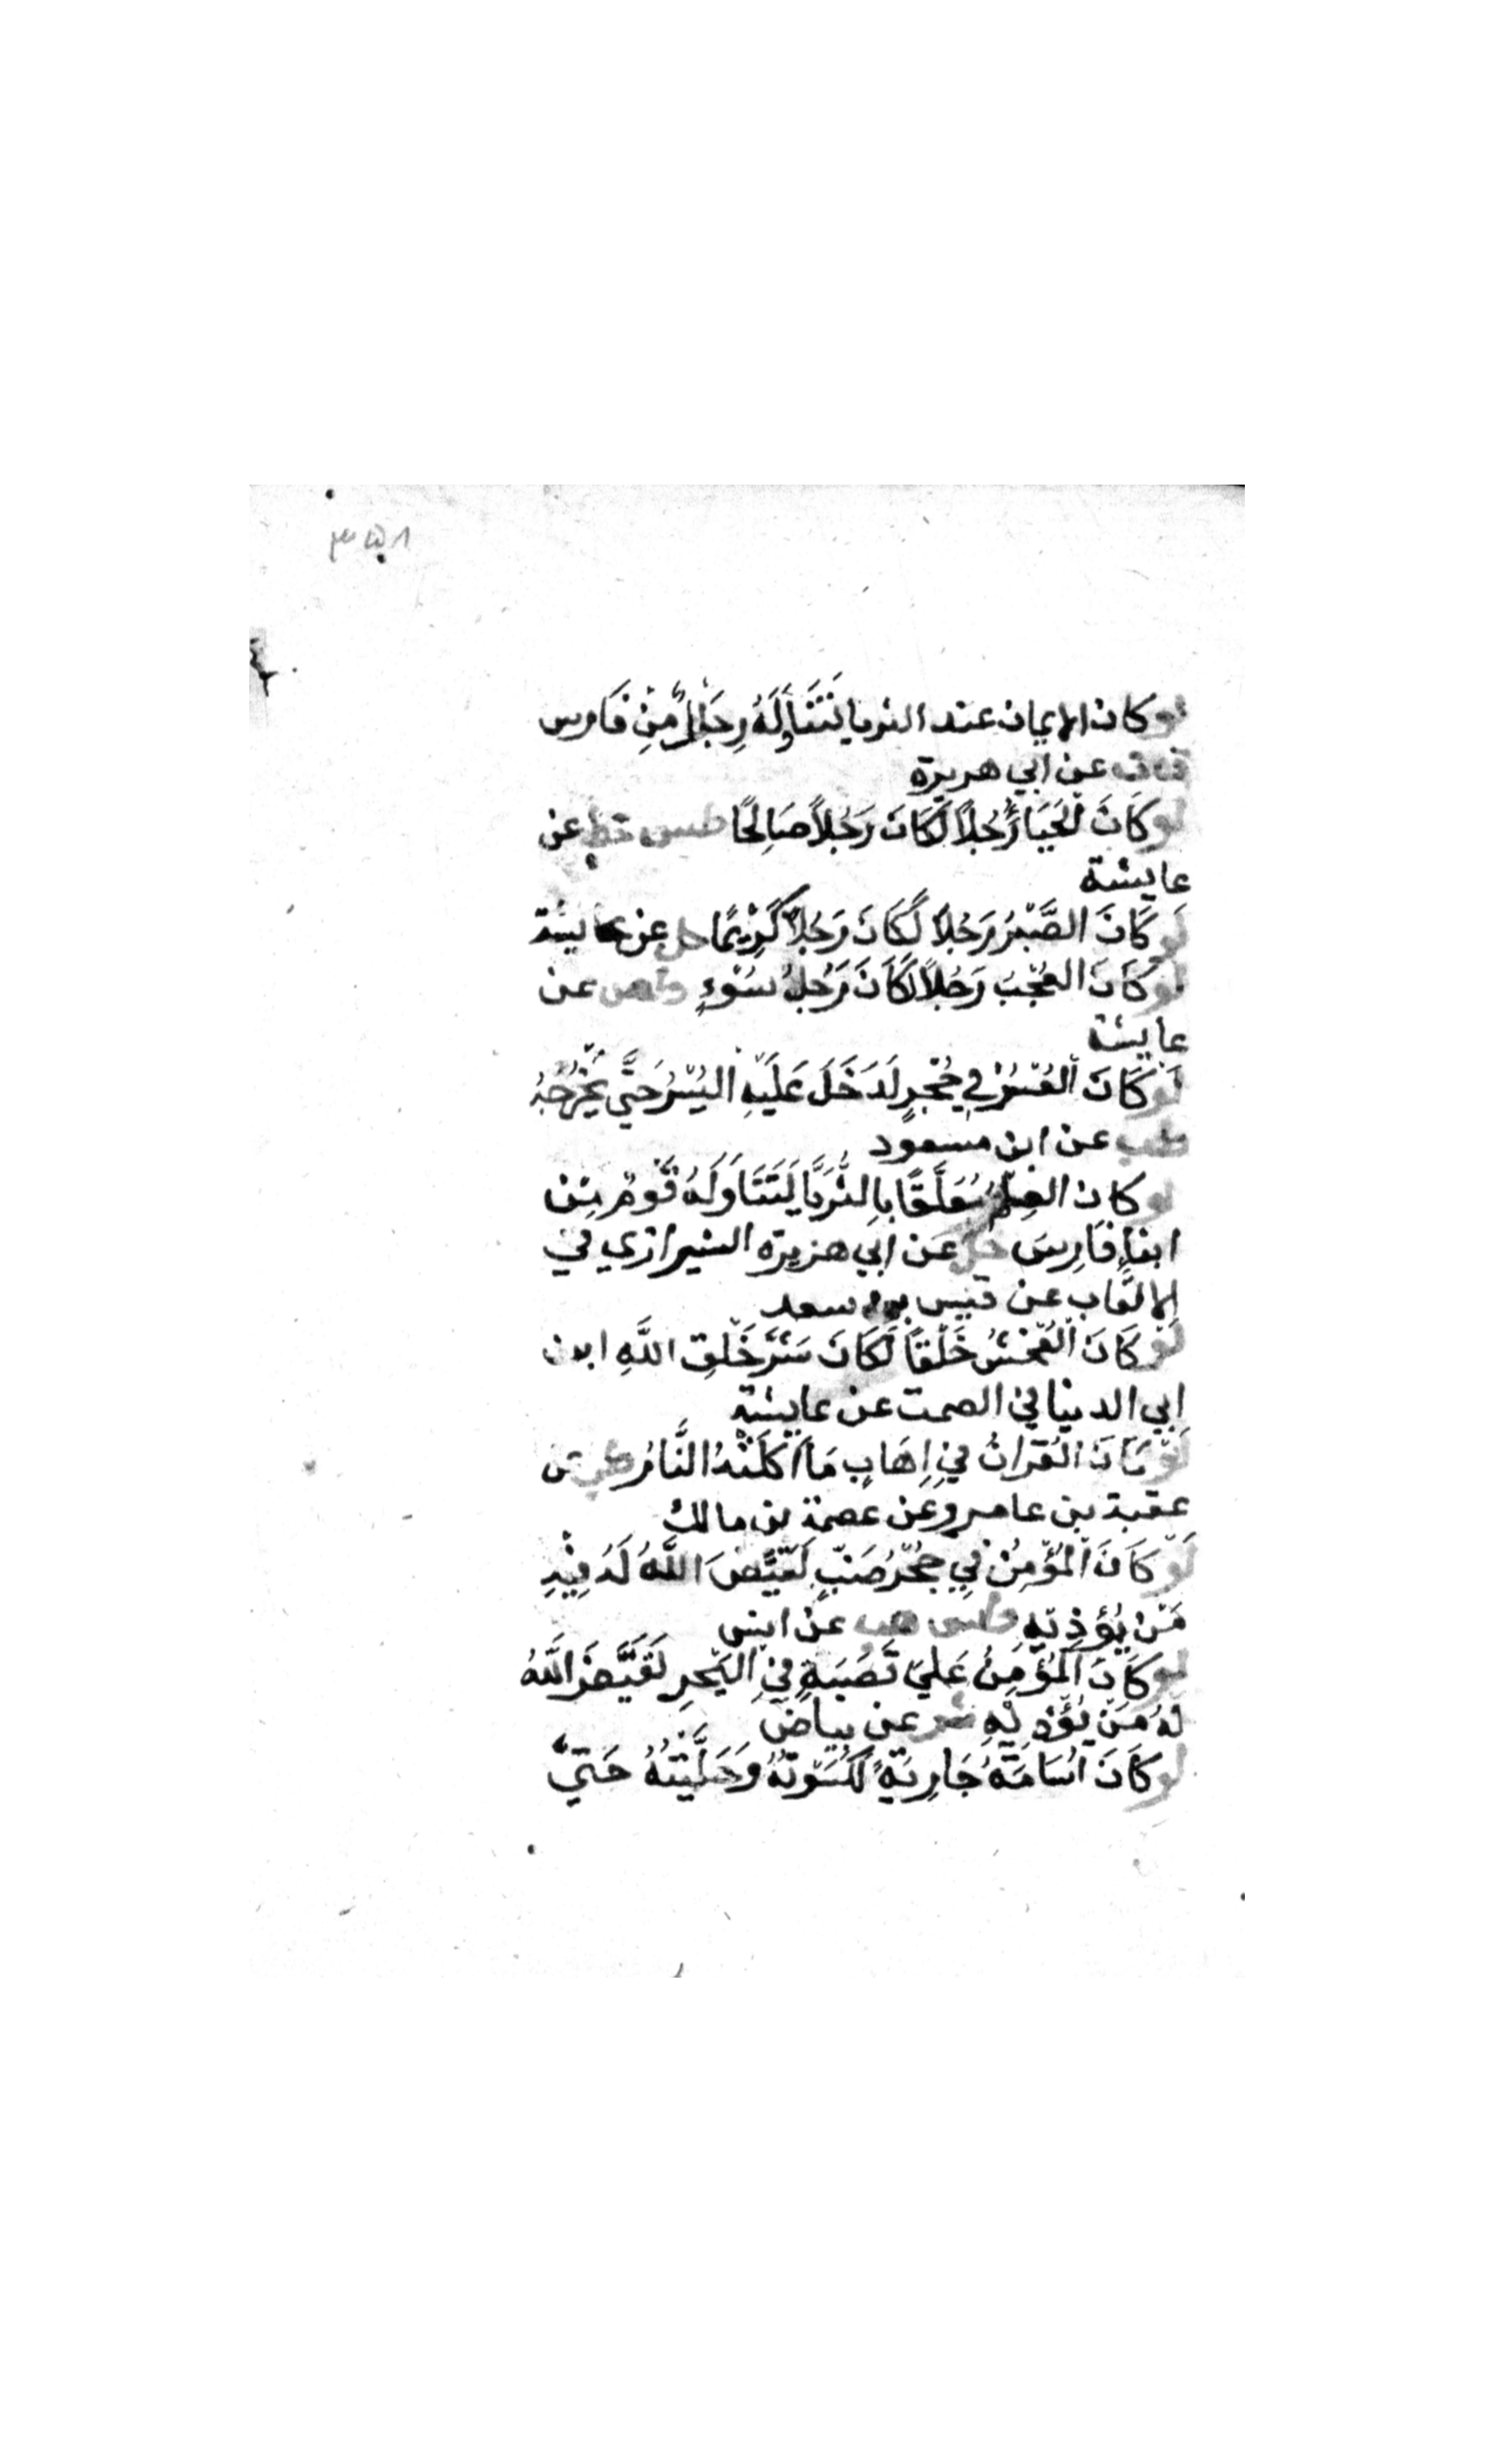 لو كان الايمان عند الثريا لَتَنَاوَلَهُ رِجَالٌ مِنْ فَارس
ق ت عن ابي هريرة
لو كَانَ الحَيَا رَجُلاً لَكَانَ رَجُلاً صَالِحًا طس خط عن
عايشة
لَو كَانَ الصَّبْرُ رَجُلاً لَكَانَ رَجُلاً كَرِيْمًا حل عن عايشة
لو كَانَ العُجْبُ رَجُلاً لَكَانَ رَجُلُ سُوْءٍ طص عن
عايشة
لَو كَانَ العُسْرُ فِي جُحْرٍ لَدَخَلَ عَلَيْهِ اليُسْرُ حَتَّي يُخْرِجُهُ
طب عن ابن مسعود
لو كان العِلْمُ مُعَلَّقًا بِالثُّرَيَّا لَتَنَاوَلَهُ قَوْمٌ مِن
ابنآءِ فَارِسَ حل عن ابي هريرة الشيرازي في
الالقاب عن قيس بن سعد
لَوْ كَانَ الفُحْشُ خَلْقًا لَكَانَ شَرَّ خَلْقِ اللَّهِ ابن
ابي الدنيا في الصمت عن عايشة
لَوْ كَانَ القُرانُ فِي اِهَابٍ مَا اَكَلَتْهُ النَّارُ طب عن
عقبة بن عامر وعن عصمة بن مالك
لَوْ كَانَ المُؤْمِنُ فِي جُحْرِ ضَبٍّ لَقَيَّضَ اللَّهُ لَهُ فِيْهِ
مَنْ يُؤْذِيهِ طس هب عن انس
لو كَانَ المُؤْمِنُ عَلَي قَصَبَةٍ فِي البَحْرِ لَقَيَّضَ اللَّهُ
لَهُ مَنْ يُؤْذِيْهِ ش عن بياض
لو كَانَ اُسَامَةُ جَارِيَةً لَكَسَوْتُهُ وَحَلَّيْتُهُ حَتيَّ